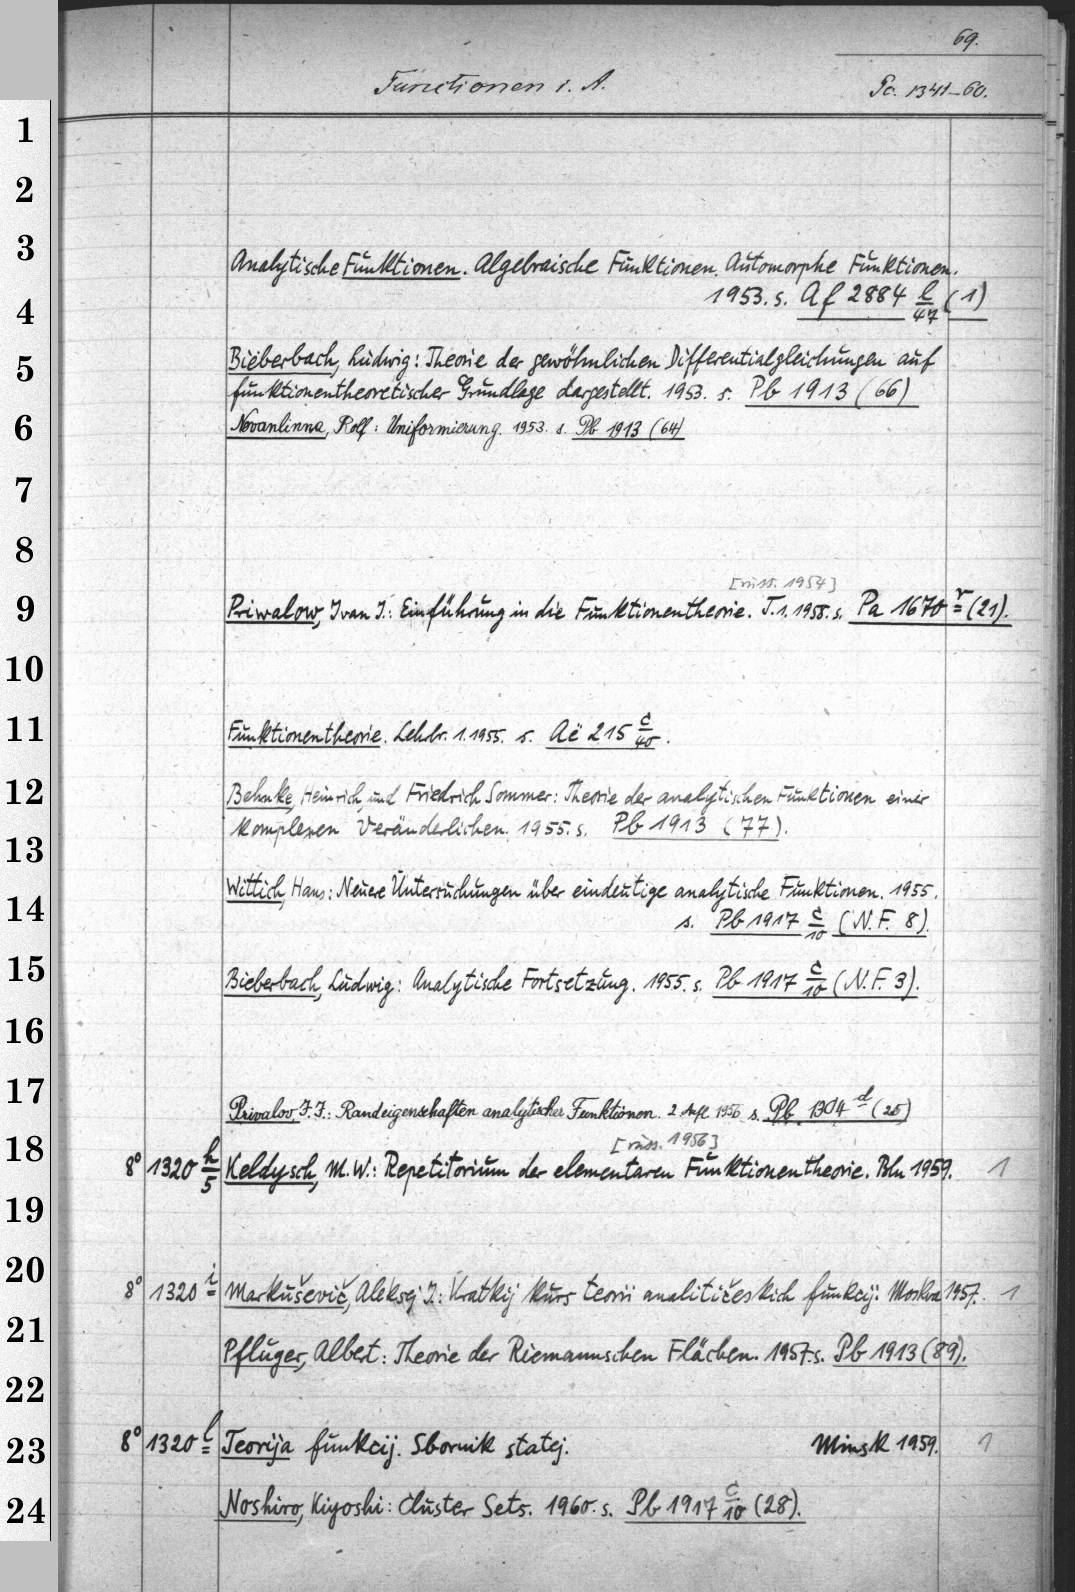 69.
Functionen i. A.
Pc. 1341-60.
1
2
3
Analytische Funktionen. Algebraische Funktionen. Automorphe Funktionen.
4
1953. s. Af 2884 l/47 (1)
5
Bieberbach, Ludwig: Theorie der gewöhnlichen Differentialgleichungen auf
funktionentheoretischer Grundlage dargestellt. 1953. s. Pb 1913 (66)
6
Nevanlinna, Rolf: Uniformisierung. 1953. s. Pb 1913 (64)
7
8
[russ. 1954]
9
Priwalow, Ivan I.: Einführung in die Funktionentheorie. T.1. 1958. s. Pa 1670 r (21).
10
11
Funktionentheorie. Lehrbr. 1. 1955. s. Aë 215 c/40.
12
Behnke, Heinrich, und Friedrich Sommer: Theorie der analytischen Funktionen einer
komplexen Veränderlichen. 1955. s. Pb 1913 (77).
13
14
Wittich, Hans: Neuere Untersuchungen über eindeutige analytische Funktionen. 1955.
s. Pb 1917 c/10 (N.F. 8).
15
Bieberbach, Ludwig: Analytische Fortsetzung. 1955. s. Pb 1917 c/10 (N.F. 3).
16
17
Privalov, I.I.: Randeigenschaften analytischer Funktionen. 2. Aufl. 1956 s. Pb 1304 d (25)
[russ. 1956]
18
8° 1320 h/5 Keldysch, M.W.: Repetitorium der elementaren Funktionentheorie. Bln 1959. 1
19
20
8° 1320 i Markušević, Aleksej I.: Kratkij kurs teorii analitičeskich funkcij. Moskva 1957. 1
21
Pfluger, Albert: Theorie der Riemannschen Flächen. 1957. s. Pb 1913 (89).
22
23
8° 1320 l Teorija funkcij. Sbornik statej. Minsk 1959. 1
24
Noshiro, Kiyoshi: Cluster Sets. 1960. s. Pb 1917 c/10 (28).